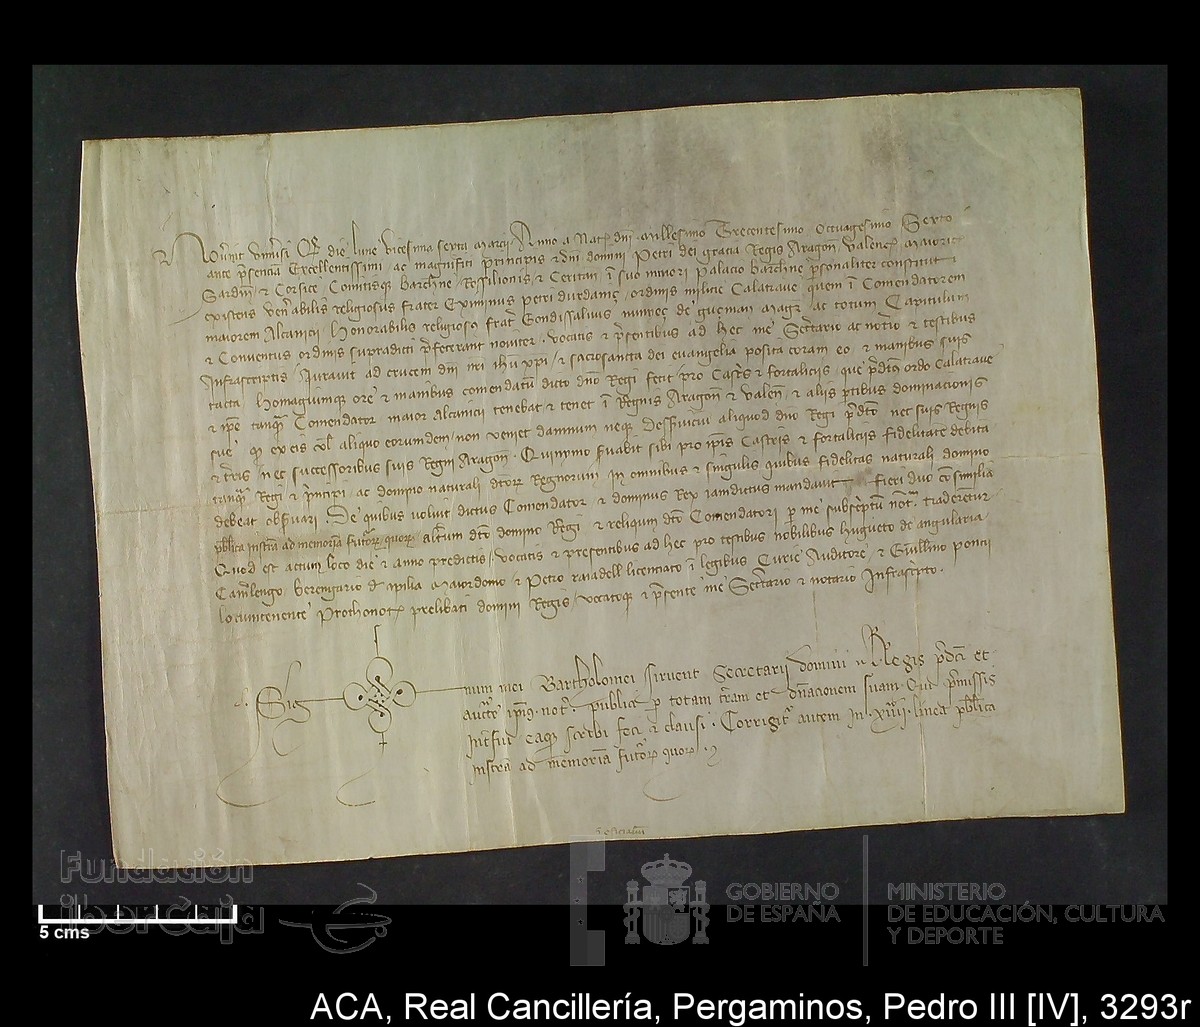 Noverint universi Qd die lune vicesima sexta marcii Anno a Nat dni Millesimo Trecentesimo Octuagesimo Sexto
ante psenciam Excellentissimi ac magnifici principis et dni domini Petri dei gracia Regis Aragon Valenc Maioric
Sardin et Corsice Comitisque Barchne Rossilionis et Ceritan in suo minori Palacio Barchne psonaliter constitut
existens venabilis religiosus frater Eximinus petri durdaniç ordinis milicie Calatrave quem in Comendatorem
maiorem Alcanicii Honorabilis religiosus frater Gondissalvus nunyeç de guçman magr ac totum Capitulum
et Conventus ordinis supradicti pfecerant noviter vocatis et psentibus ad hec me Secretario ac notario et testibus
Infrascriptis Juravit ad crucem dni nri ihu xpi et sacrosancta dei evangelia posita coram eo et manibus suis
tacta Homagiumque ore et manibus comendatum dicto dno Regi fecit pro Castris et fortaliciis que pdictus ordo Calatrave
et ipe tanquam Comendator maior Alcanicii tenebat et tenet in Regnis Aragon et Valen et aliis ptibus dominacionis
sue quod ex eis vel aliquo eorumdem non veniet dampnum neque desserviciu aliquod dno Regi pdcto nec suis Regnis
et terris nec successoribus suis Regni Aragon Quinymo servabit sibi pro ipsis Castris et fortaliciis fidelitate debita
tanquam Regi et principi ac domino naturali dctorum Regnorum in omnibus et singulis quibus fidelitas naturali domino
debeat observari De quibus voluit dictus Comendator et dominus Rex iamdictus mandavit fieri duo consimilia
publica instra ad memoria futuror quorum alterum dcto domino Regi et reliqum dcto Comendatori per me subscriptum notar traderetur
Quod est actum loco die et anno predictis vocatis et presentibus ad hec pro testibus nobilibus hugueto de angularia
Camerlengo berengario d apilia Maiordomo et Petro çacadell licenciato in legibus Curie Auditore et Guillmo poncii
locumtenente Prothonot prelibati domini Regis vocatoque et psente me Secretario et notario Infrascripto
Sig num mei Bartholomei sirvent Secretarii domini Regis pdci et
auctte ipius not publici p totam terram et dnacionem suam Qui pmissis
Interfui eaque scribi feci et clausi Corrigitur autem in xiiii linea publica
instra ad memoria futuror quorum
5 cms
Fundación
iberCaja
GOBIERNO
DE ESPAÑA
MINISTERIO
DE EDUCACIÓN, CULTURA
Y DEPORTE
ACA, Real Cancillería, Pergaminos, Pedro III [IV], 3293r